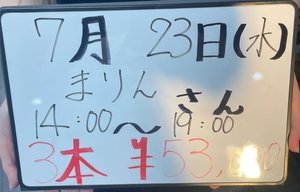 7月 23日(水)
まりん さん
14:00〜19:00
3本 ¥53,000